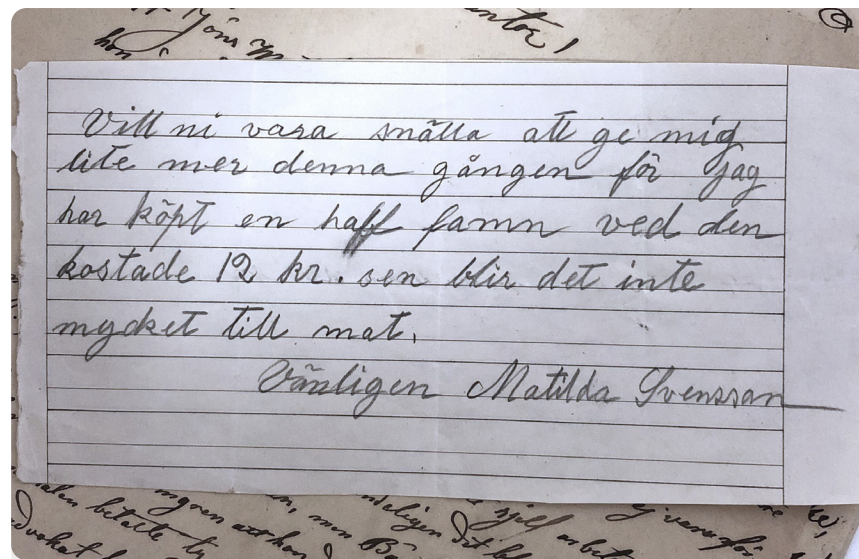 Jöns
hon
Vill ni vara snälla att ge mig
lite mer denna gången för jag
har köpt en half famn ved den
kostade 12 kr. sen blir det inte
mycket till mat.
Vänligen Matilda Svensson
betalte
men
sjelf